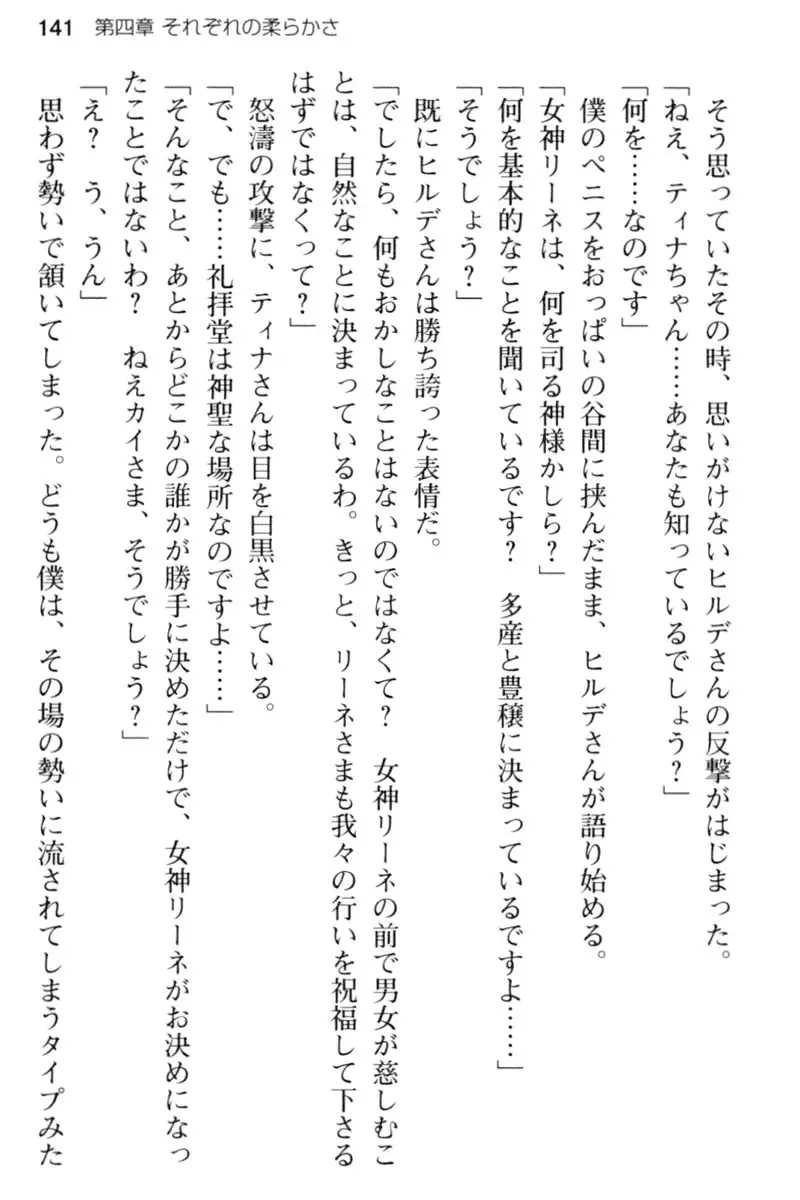 141 第四章 それぞれの柔らかさ
そう思っていたその時、思いがけないヒルデさんの反撃がはじまった。
「ねえ、ティナちゃん……あなたも知っているでしょう?」
「何を……なのです」
僕のペニスをおっぱいの谷間に挟んだまま、ヒルデさんが語り始める。
「女神リーネは、何を司る神様かしら?」
「何を基本的なことを聞いているです? 多産と豊穣に決まっているですよ……」
「そうでしょう?」
既にヒルデさんは勝ち誇った表情だ。
「でしたら、何もおかしなことはないのではなくて? 女神リーネの前で男女が慈しむこ
とは、自然なことに決まっているわ。きっと、リーネさまも我々の行いを祝福して下さる
はずではなくって?」
怒濤の攻撃に、ティナさんは目を白黒させている。
「で、でも……礼拝堂は神聖な場所なのですよ……」
「そんなこと、あとからどこかの誰かが勝手に決めただけで、女神リーネがお決めになっ
たことではないわ? ねえカイさま、そうでしょう?」
「え? う、うん」
思わず勢いで頷いてしまった。どうも僕は、その場の勢いに流されてしまうタイプみた